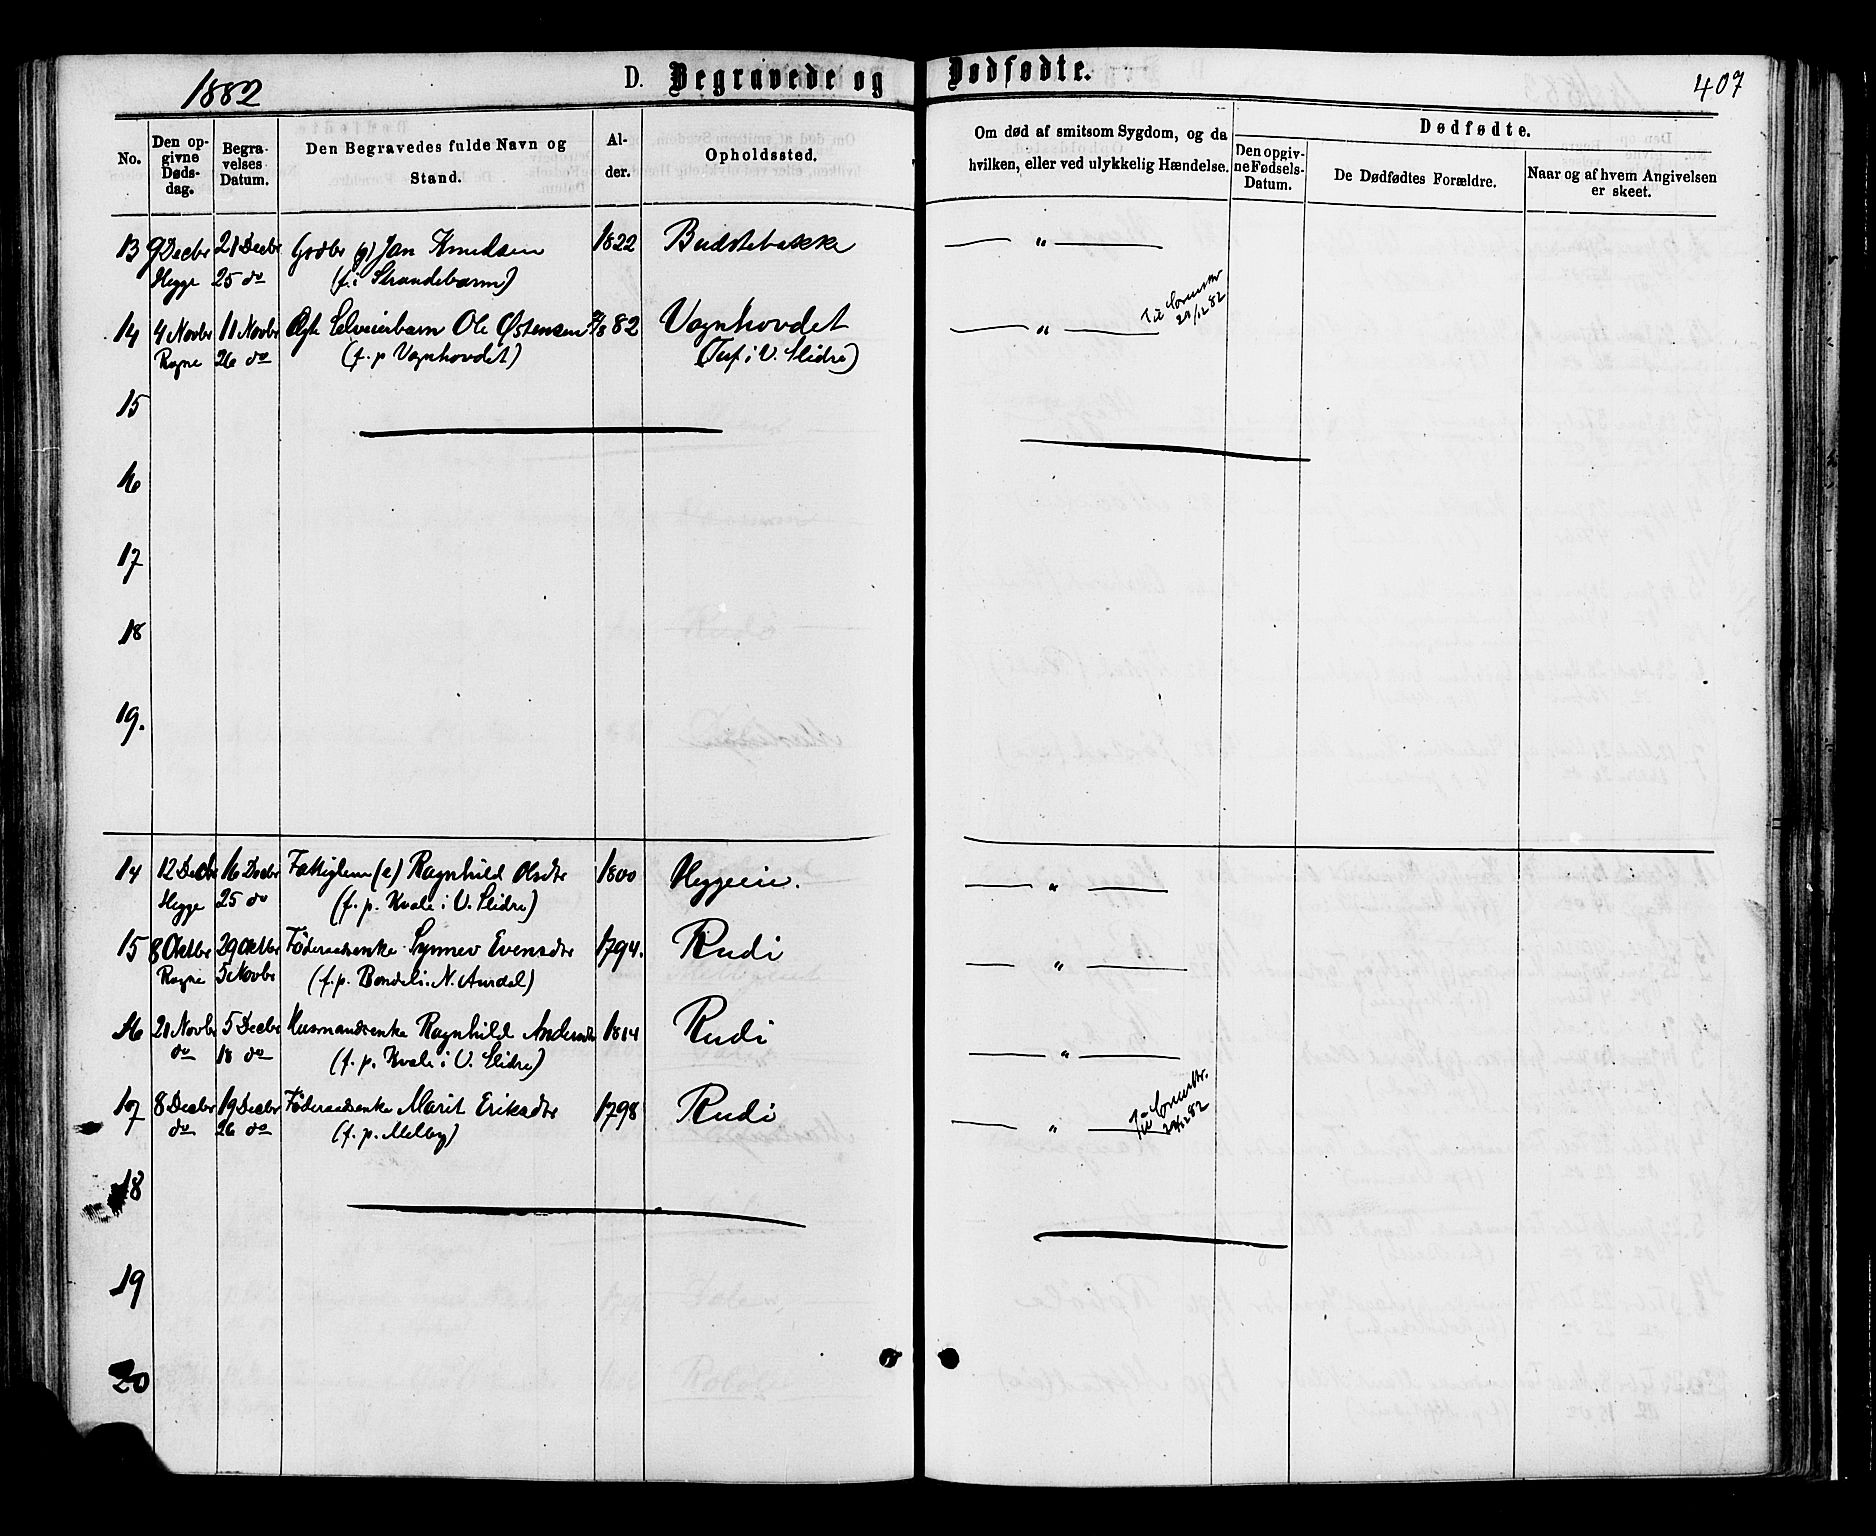 1882 D. Begravede og Dødfødte. 407
No.
Den opgivne Dødsdag.
Begravelses Datum.
Den Begravedes fulde Navn og Stand.
Alder.
Opholdssted.
Om død af smitsom Sygdom, og da hvilken, eller ved ulykkelig Hændelse.
Dødfødte.
Den opgivne Fødsels-Datum.
De Dødfødtes Forældre.
Naar og af hvem Angivelsen er skeet.
13 9 Decbr 21 Decbr Gdbr (g) Jan Knudsen 1822 Budstebakke — " —
Hegge 25 do (f. i Strandebarm)
14 4 Novbr 11 Novbr Ægte Selveierbarn Ole Østensen /8 82 Vagnhovdet — " —
Rogne 26 do (f. p Vagnhovdet) (Tuf i V. Slidre)
15
16
17
18
19.
14 12 Decbr 16 Decbr Fattiglem (e) Ragnhild Olsdtr 1800 Heggeeie. — " —
Hegge 25 do (f. p. Kvale i V. Slidre)
15 8 Oktbr 29 Oktbr Føderaadsenke Synnev Evensdtr 1794. Rudi — " —
Rogne 5 Novbr (f. p. Bondeli i N. Aurdal)
16 21 Novbr 5 Decbr Husmandsenke Ragnhild Andersdtr 1814 Rudi — " —
do 18 do (f. p. Kvale i V. Slidre)
17 8 Decbr 19 Decbr Føderaadsenke Marit Eriksdtr 1798 Rudi — " —
do 26 do (f. p. Melby)
18
19
20